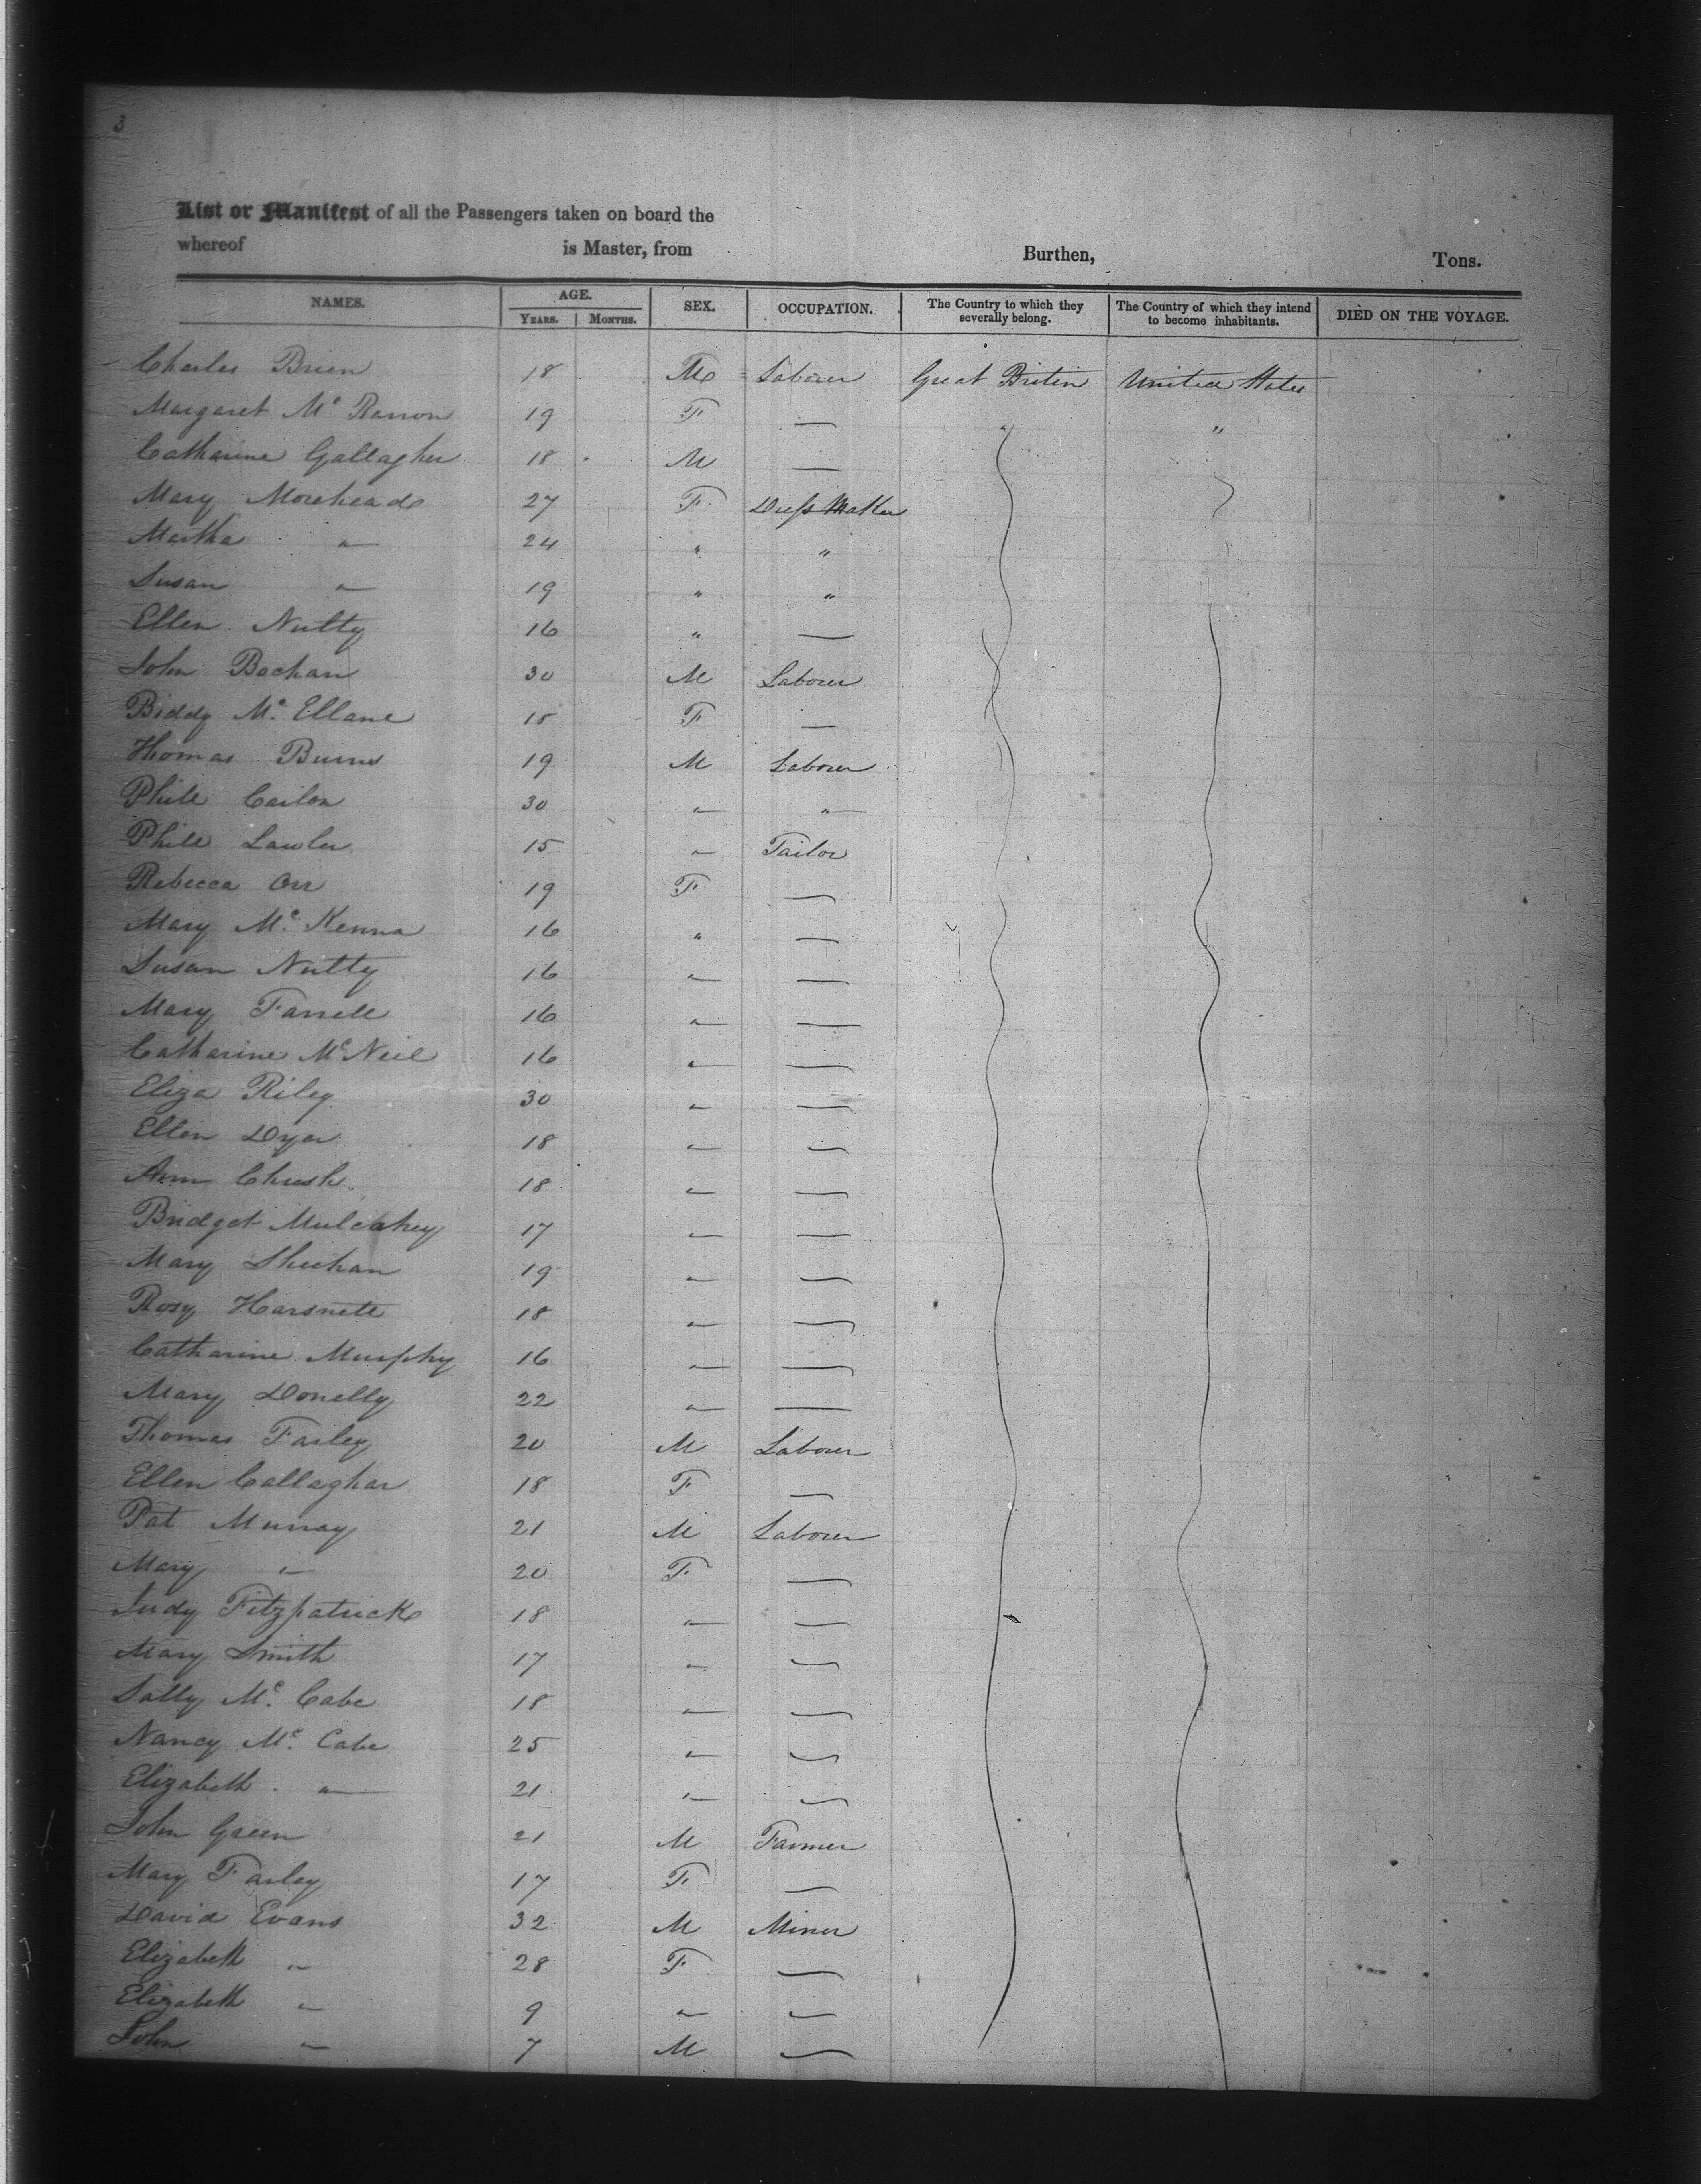 3
List or Manifest of all the Passengers taken on board the
whereof is Master, from Burthen, Tons.
NAMES. AGE. YEARS. MONTHS. SEX. OCCUPATION. The Country to which they severally belong. The Country of which they intend to become inhabitants. DIED ON THE VOYAGE.
Charles Brien 18 M Laborer Great Britin United States
Margaret Mc Rarron 19 F — " "
Catharine Gallagher 18 M —
Mary Morehead 27 F Dress Maker
Martha " 24 " "
Susan " 19 " "
Ellen Nutty 16 " —
John Bochan 30 M Laborer
Biddy Mc Ellane 18 F —
Thomas Burns 19 M Laborer
Phill Carlon 30 " "
Phill Lawler 15 " Tailor
Rebecca Orr 19 F —
Mary Mc Kenna 16 " —
Susan Nutty 16 " —
Mary Farrell 16 " —
Catharine Mc Neil 16 " —
Eliza Riley 30 " —
Ellen Dyer 18 " —
Ann 18 " —
Bridget Mulcahey 17 " —
Mary Sheehan 19 " —
Rosy Harsnett 18 " —
Catharine Murphy 16 " —
Mary Donelly 22 " —
Thomas Farley 20 M Laborer
Ellen Callaghan 18 F —
Pat Murray 21 M Laborer
Mary " 20 F —
Judy Fitzpatrick 18 " —
Mary Smith 17 " —
Sally Mc Cabe 18 " —
Nancy Mc Cabe 25 " —
Elizabeth " 21 " —
John Green 21 M Farmer
Mary Farley 17 F —
David Evans 32 M Miner
Elizabeth " 28 F —
Elizabeth " 9 " —
John " 7 M —